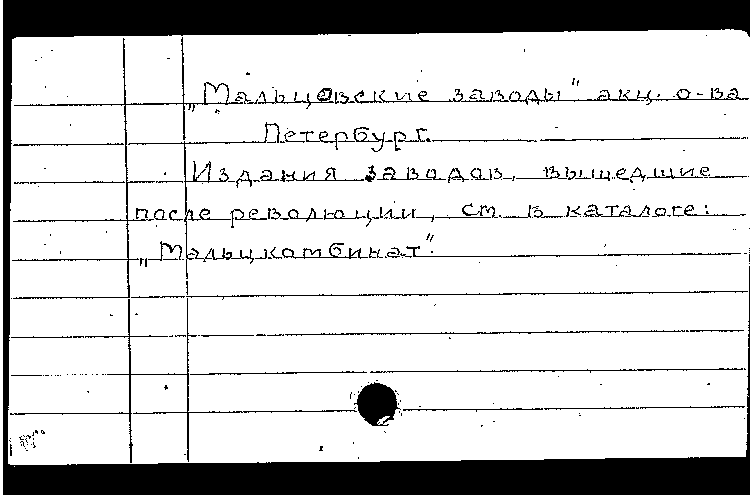 „Мальцовские заводы" акц. о-ва
Петербург.
Издания заводов, вышедшие
после революции, см. в каталоге:
„Мальцкомбинат".